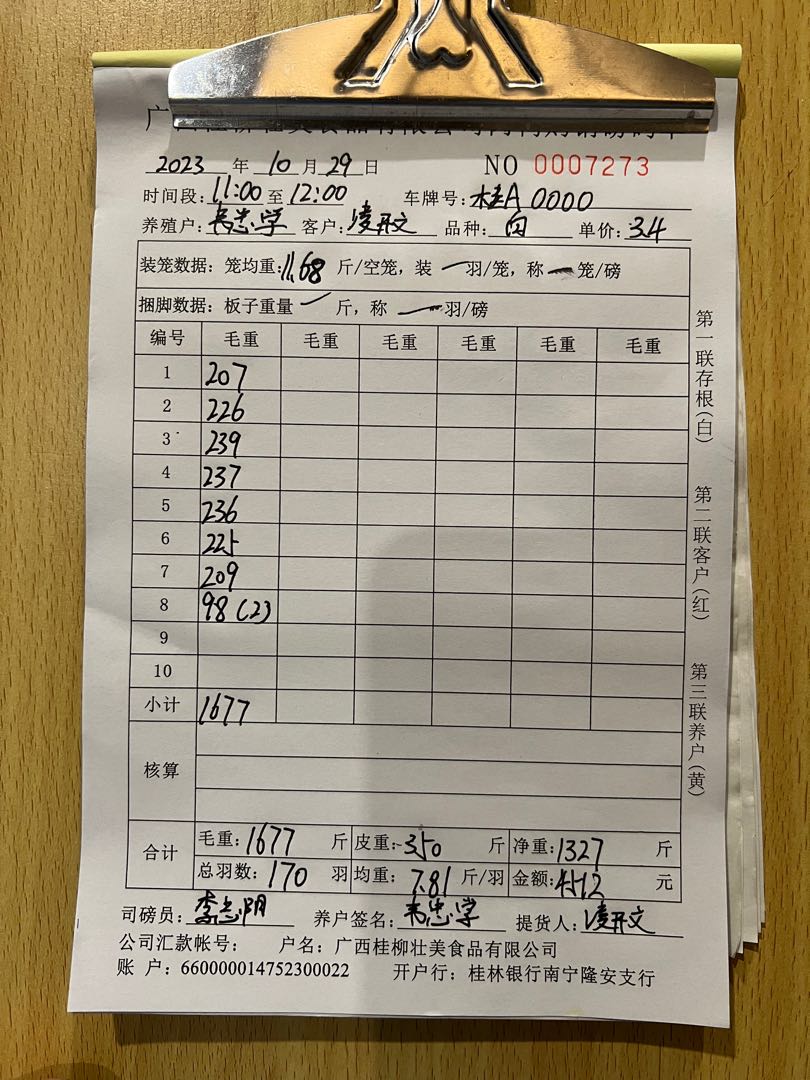 2023 年 10 月 29 日 NO 0007273
时间段: 11:00 至 12:00 车牌号: 桂A 0000
养殖户: 韦忠学 客户: 凌开文 品种: 白 单价: 3.4
装笼数据: 笼均重: 11.68 斤/空笼, 装 一 羽/笼, 称 一 笼/磅
捆脚数据: 板子重量 一 斤, 称 一 羽/磅
编号 毛重 毛重 毛重 毛重 毛重 毛重
1 207
2 226
3 239
4 237
5 236
6 225
7 209
8 98(2)
9
10
小计 1677
核算
合计 毛重: 1677 斤 皮重: 350 斤 净重: 1327 斤
总羽数: 170 羽 均重: 7.81 斤/羽 金额: 4512 元
司磅员: 李志阴 养户签名: 韦忠学 提货人: 凌开文
公司汇款帐号: 户名: 广西桂柳壮美食品有限公司
账 户: 660000014752300022 开户行: 桂林银行南宁隆安支行
第一联存根(白)
第二联客户(红)
第三联养户(黄)